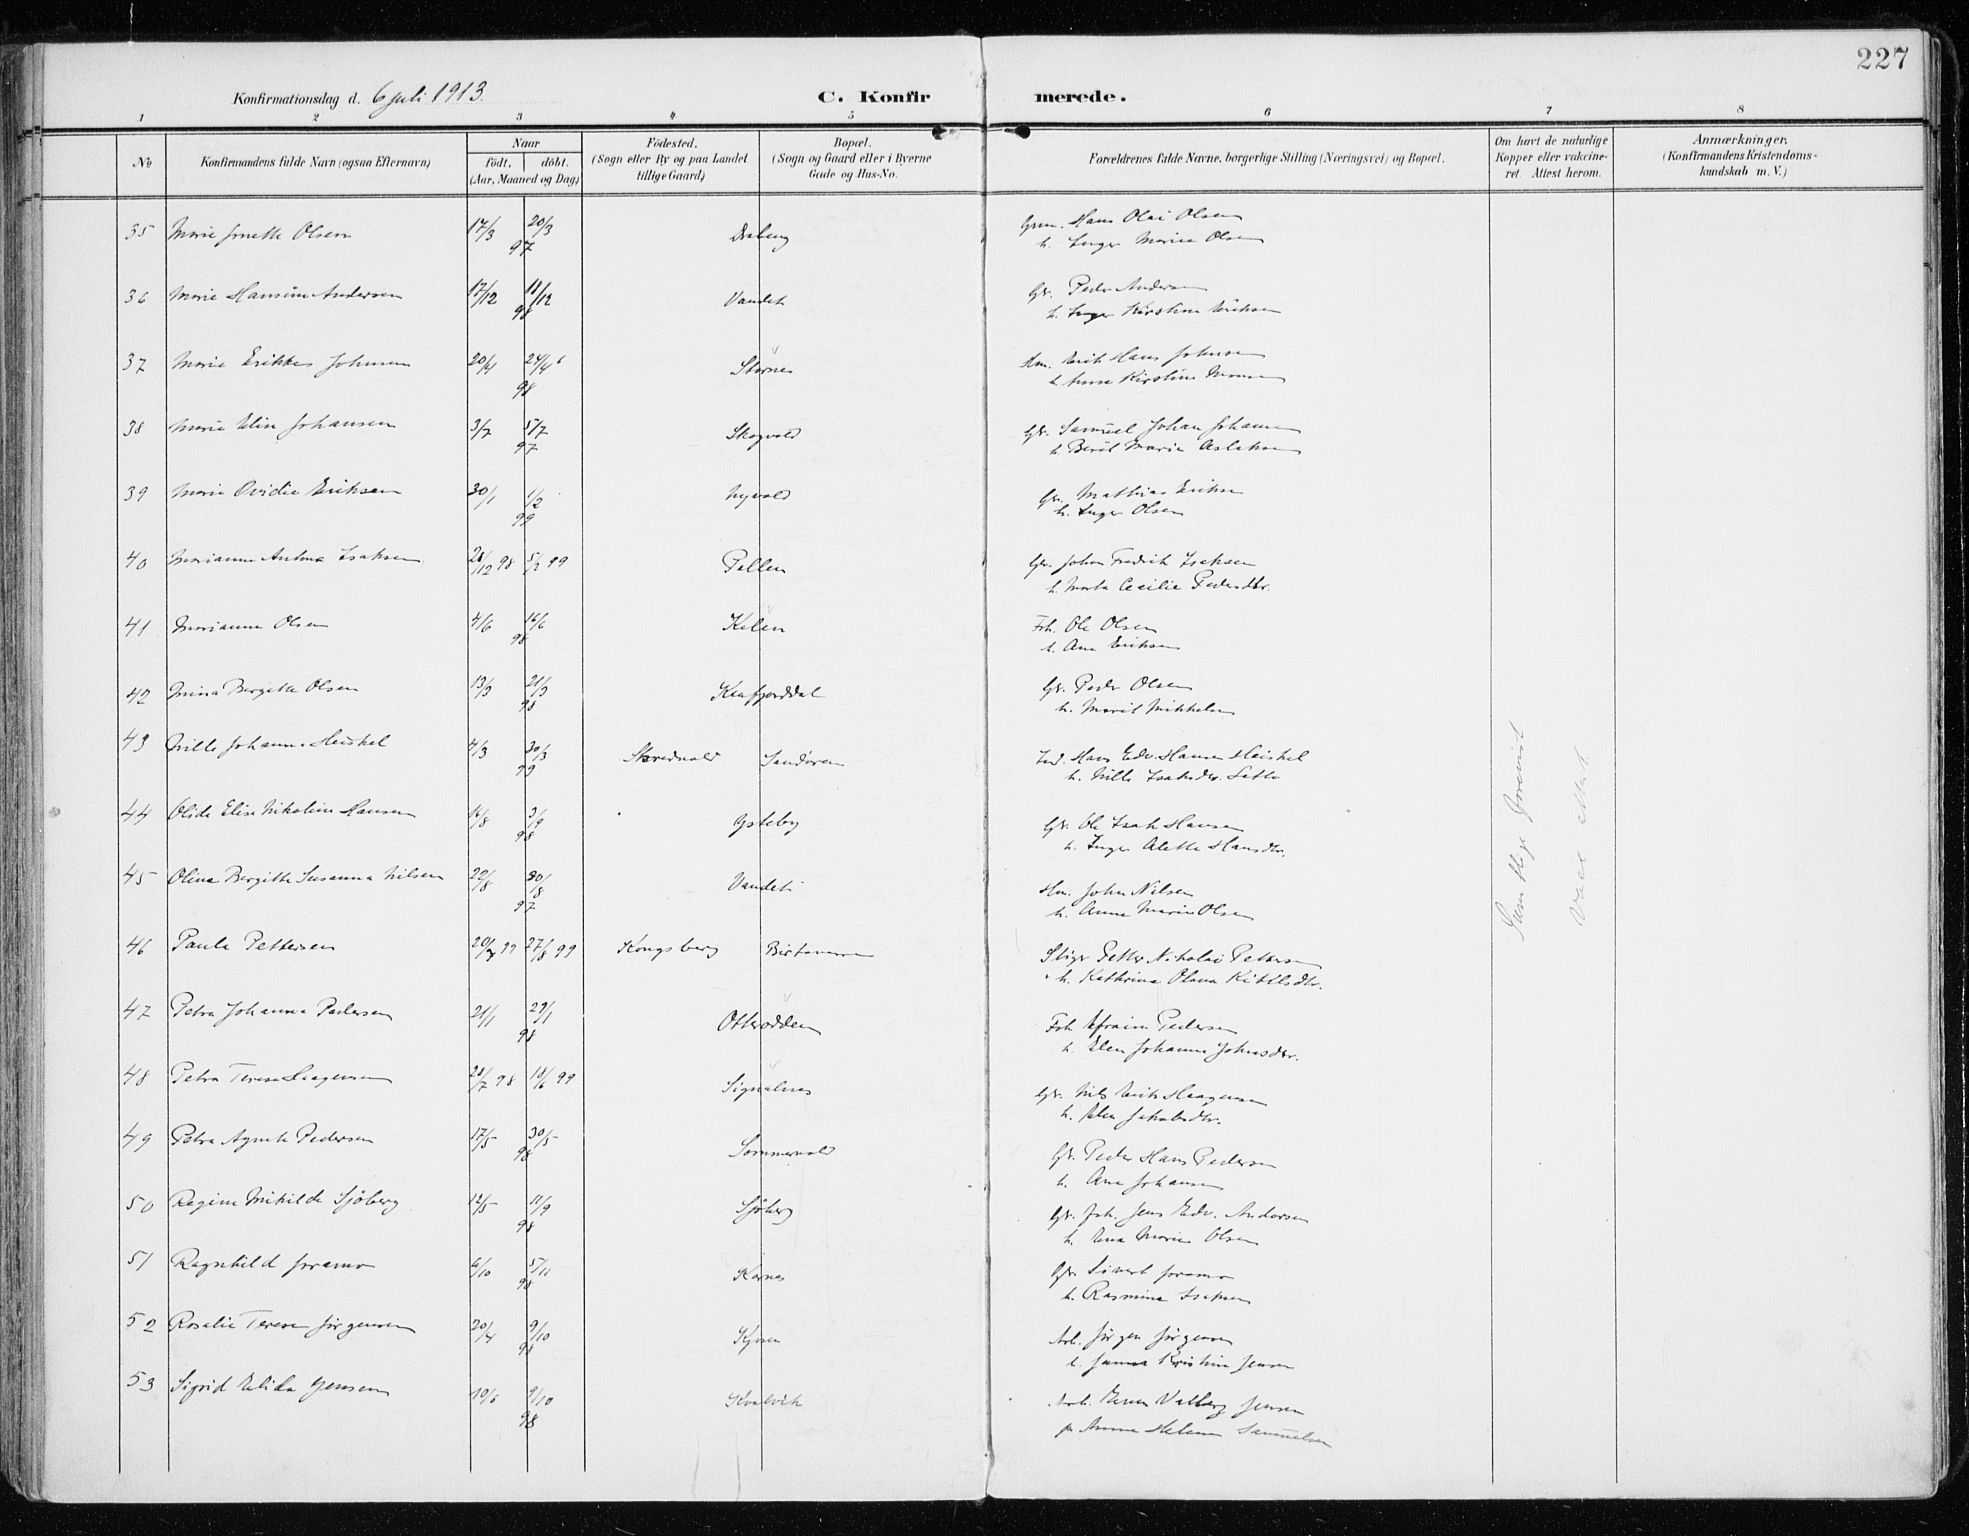 227
Konfirmationsdag d. 6 juli 1913. C. Konfirmerede.
1 2 3 4 5 6 7 8
No
Konfirmandens fulde Navn (ogsaa Efternavn)
Naar
födt. döbt.
(Aar, Maaned og Dag)
Födested.
(Sogn eller By og paa Landet
tillige Gaard)
Bopæl.
(Sogn og Gaard eller i Byerne
Gade og Hus-No.
Forældrenes fulde Navne, borgerlige Stilling (Næringsvei) og Bopæl.
Om havt de naturlige
Kopper eller vakcine-
ret. Attest herom.
Anmærkninger.
(Konfirmandens Kristendoms-
kundskab m. V.)
35 Marie Olsen 17/3 20/3 Hans Olai Olsen
97 h. Inger Marie Olsen
36 Marie Hansine Andersen 17/12 18/12 Vandet Gbr. Peder Andersen
98 h. Inger Kirstine Eriksen
37 Marie Erikka Johnsen 20/4 24/4 Stornes Erik Hans Johnsen
98 h. Anna Kirstine Monsen
38 Marie Elise Johansen 3/7 5/7 Skogvold Gbr. Samuel Johan Johansen
97 h. Berit Marie Aslaksen
39 Marie Ovidie Eriksen 30/1 1/2 Nyvold Gbr. Mathias Eriksen
99 h. Inger Olsen
40 Marianne Antona Isaksen 28/12 98 5/2 99 Pollen Gbr. Johan Fredrik Isaksen
h. Marta Cecilie Pedersdtr.
41 Marianne Olsen 4/6 16/6 Kilen Fsk. Ole Olsen
98 h. Ane Eriksen
42 Mina Bergitte Olsen 13/3 21/3 Kaafjorddal Gbr. Peder Olsen
98 h. Marit Mikkelsen
43 Nille Johanne Heiskel 4/3 30/3 Skredvold Sandøren Ind. Hans Edv. Hansen Heiskel
99 h. Nille Isaksdtr.
44 Olida Elise Nikoline Hansen 16/8 3/9 Ysteby Gbr. Ole Isak Hansen
98 h. Inger Alette Hansdtr.
45 Olina Bergitte Susanna Nilsen 22/8 30/8 Vandet Hm. John Nilsen
97 h. Anna Marie Olsen
46 Paula Pettersen 20/7 99 27/8 99 Kongsberg Birtavarre Stiger Petter Nikolai Pettersen
h. Kathrine Olava Kittilsdtr.
47 Petra Johanna Pedersen 21/1 29/1 Otterodden Fsk. Efraim Pedersen
98 h. Elen Johanna Johnsdtr.
48 Petra Terese Haagensen 28/7 98 18/6 99 Signalnes Gbr. Nils Erik Haagensen
h. Elen Jakobsdtr.
49 Petra Agnete Pedersen 17/5 30/5 Sommervold Gbr. Peder Hans Pedersen
98 h. Ane Johansen
50 Regine Mihilde Sjöberg 12/5 11/9 Sjöberg Gbr. Joh. Jens Edv. Andersen
98 h. Marie Olsen
51 Ragnhild Joramo 6/10 5/11 Karnes Gbr. Sivert Joramo
98 h. Rasmine Isaksen
52 Rosalie Terese Jørgensen 20/4 9/10 Kjosen Arb. Jørgen Jørgensen
98 h. Kristine Jensen
53 Sigrid Elida Jensen 10/6 9/10 Kvalvik Arb. Valberg Jensen
98 Anna Helene Samuelsen
Samtlige forevist
Vacc. Attest